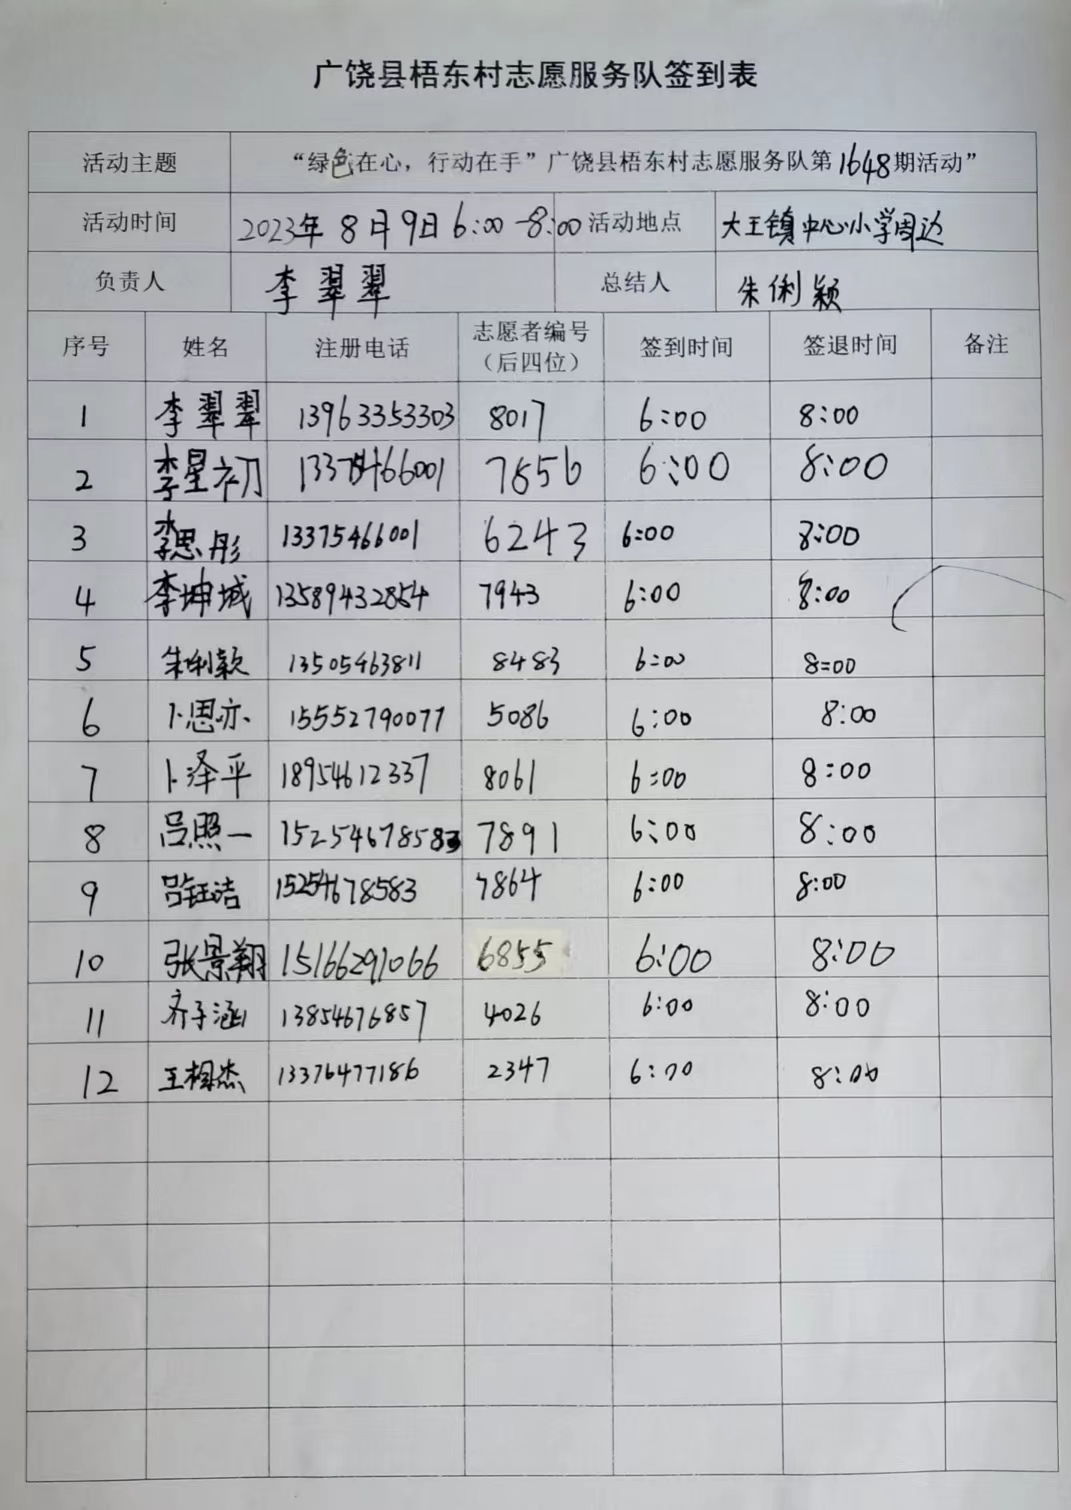 广饶县梧东村志愿服务队签到表
活动主题 “绿色在心，行动在手”广饶县梧东村志愿服务队第1648期活动”
活动时间 2023年8月9日6:00-8:00 活动地点 大王镇中心小学周边
负责人 李翠翠 总结人 朱俐颖
序号 姓名 注册电话 志愿者编号（后四位） 签到时间 签退时间 备注
1 李翠翠 13963353303 8017 6:00 8:00
2 李星初 13375466001 7856 6:00 8:00
3 李思彤 13375466001 6243 6:00 8:00
4 李坤城 13589432854 7943 6:00 8:00
5 朱俐颖 13505463811 8483 6:00 8:00
6 卜思亦 15552790077 5086 6:00 8:00
7 卜泽平 18954612337 8061 6:00 8:00
8 吕照一 15254678583 7891 6:00 8:00
9 吕钰洁 15254678583 7864 6:00 8:00
10 张景翔 15166291066 6855 6:00 8:00
11 齐子涵 13854676857 4026 6:00 8:00
12 王相杰 13376477186 2347 6:00 8:00